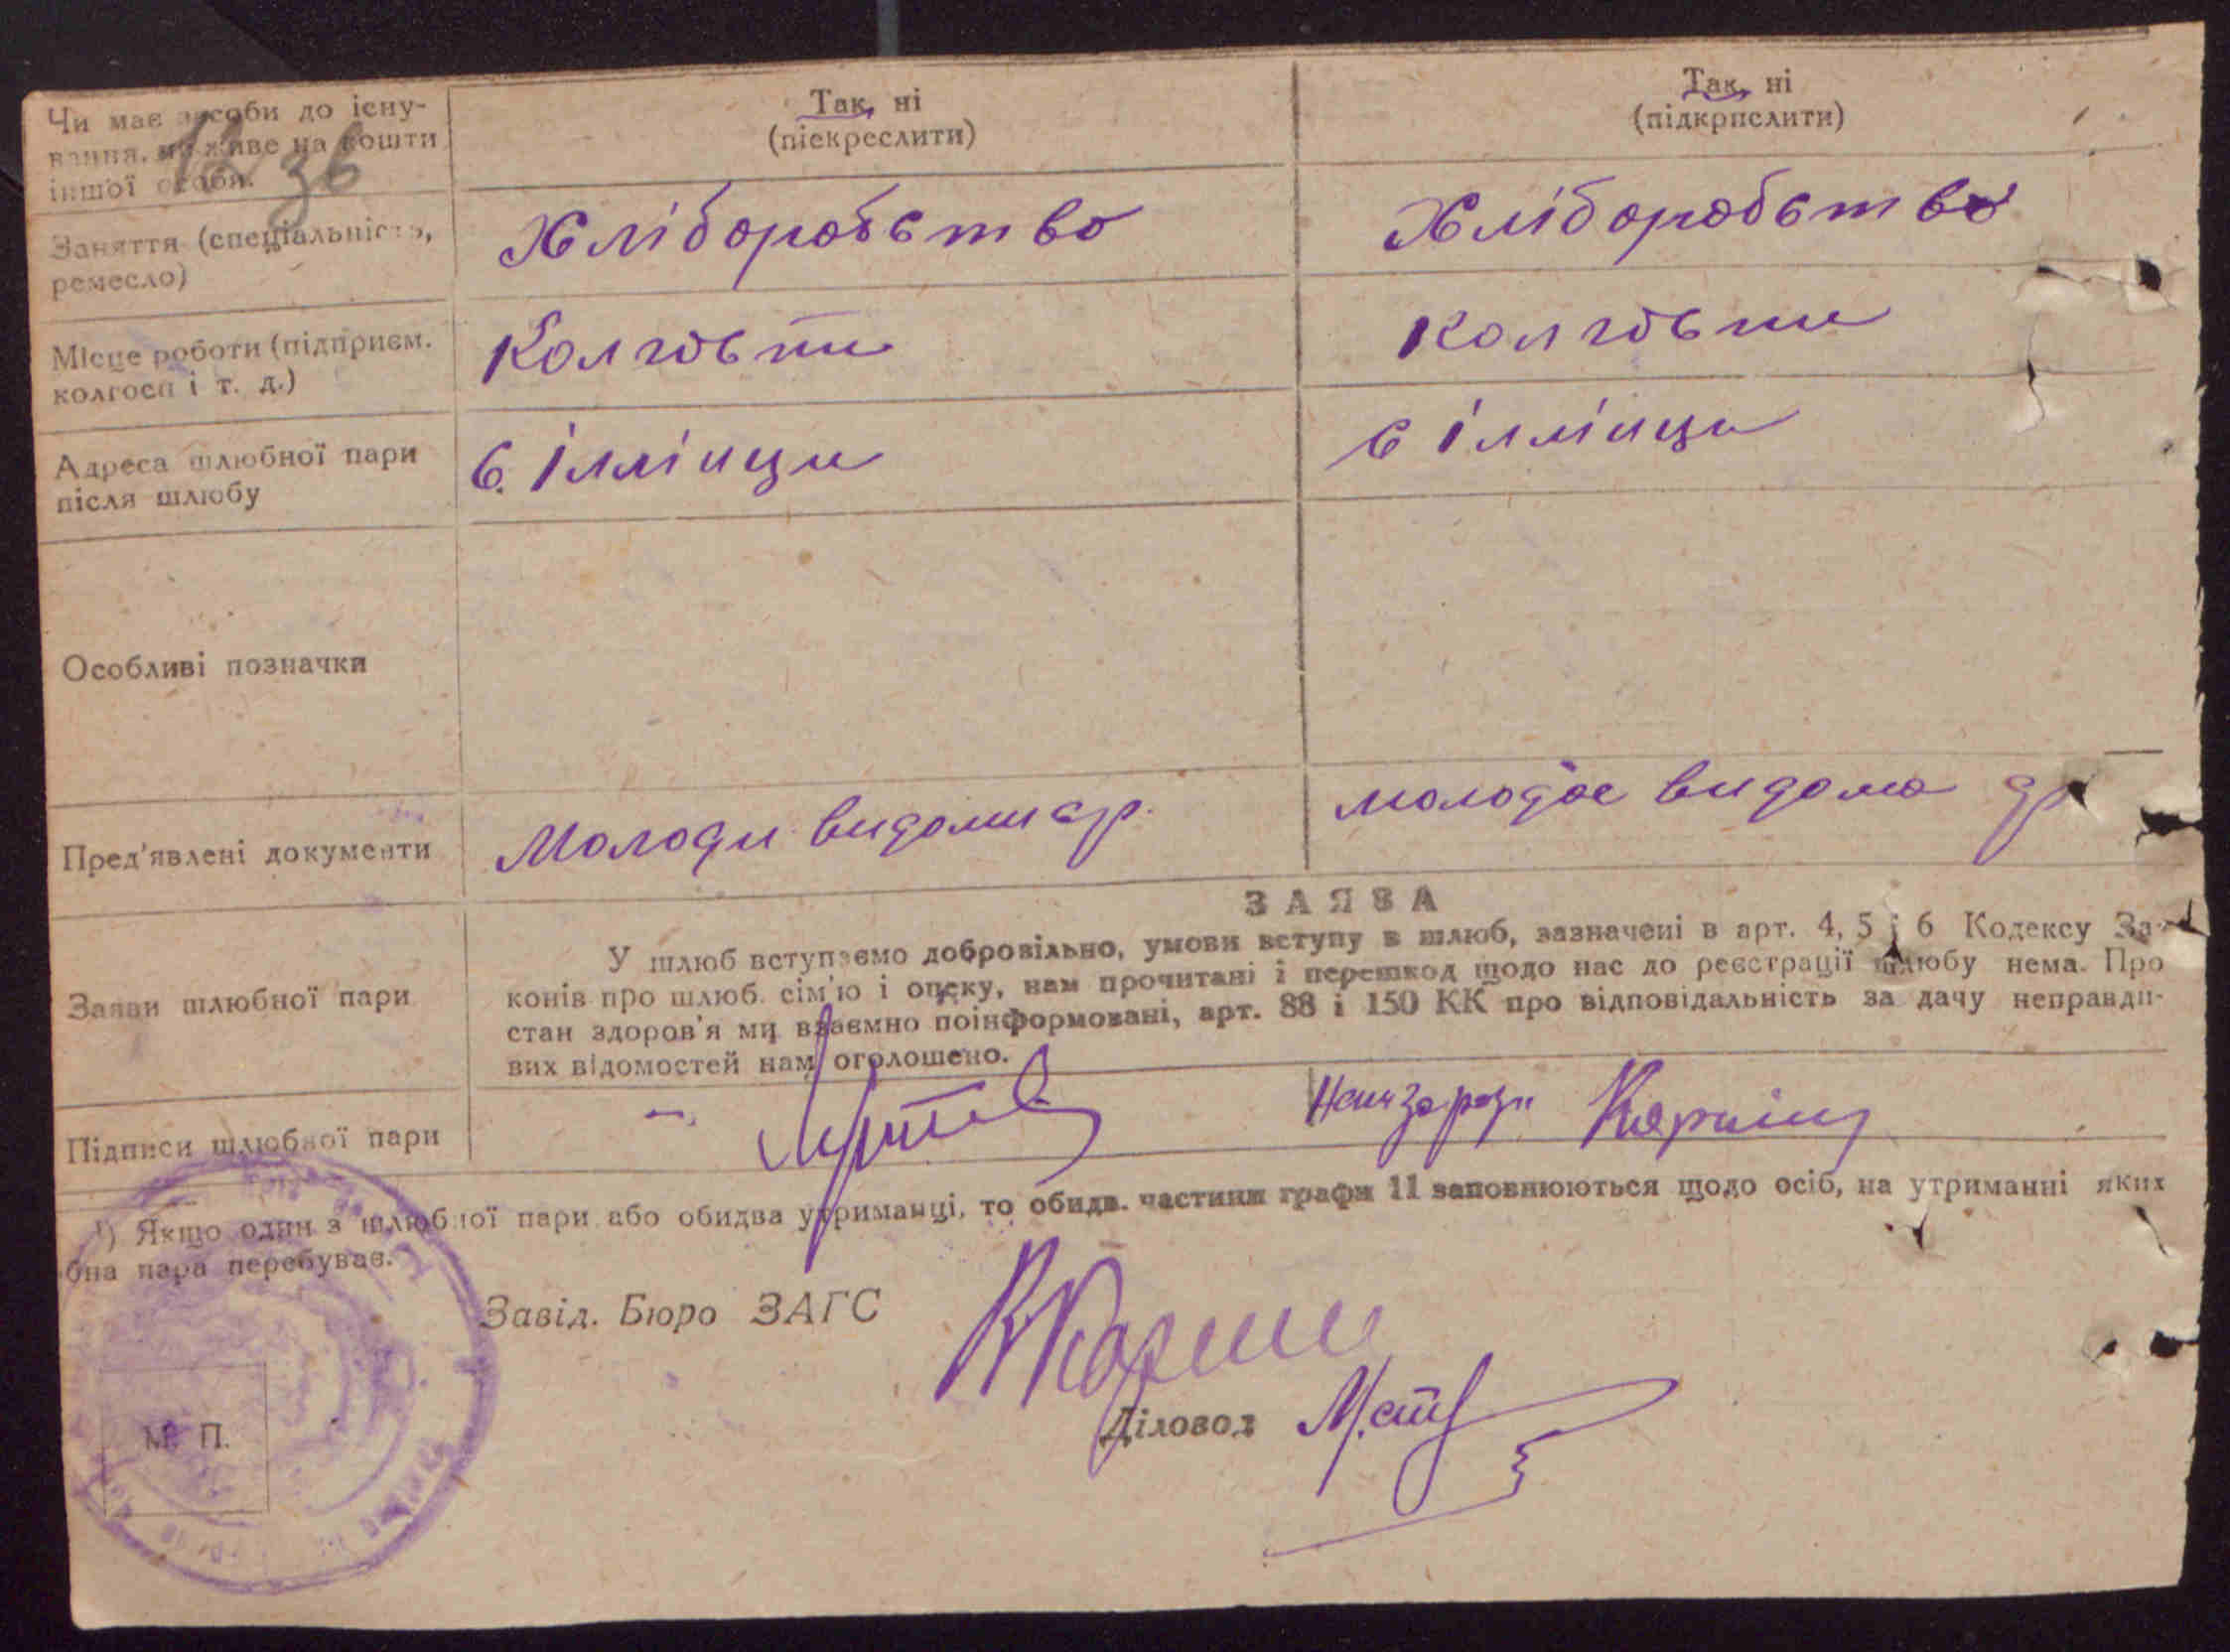 Чи має засоби до існу-
вання, чи живе на кошти
іншої особи.
36
Так, ні
(піекреслити)
Так, ні
(підкрпслити)
Заняття (спеціальність,
ремесло)
Хліборобство
Хліборобство
Місце роботи (підприєм.
колгосп і т. д.)
Колгоспи
Колгоспи
Адреса шлюбної пари
після шлюбу
с. Іллінци
с Іллінци
Особливі позначки
Пред'явлені документи
Молоди
молодое видома
ЗАЯВА
Заяви шлюбної пари
У шлюб вступаємо добровільно, умови вступу в шлюб, зазначені в арт. 4, 5 і 6 Кодексу За-
конів про шлюб. сім'ю і опеку, нам прочитані і перешкод щодо нас до реєстрації шлюбу нема. Про
стан здоров'я ми взаємно поінформовані, арт. 88 і 150 КК про відповідальність за дачу неправди-
вих відомостей нам оголошено.
Підписи шлюбної пари
¹) Якщо один з шлюбної пари або обидва утриманці, то обидв. частини графи 11 заповнюються щодо осіб, на утриманні яких
бна пара перебуває.
Завід. Бюро ЗАГС
Діловод
М. П.